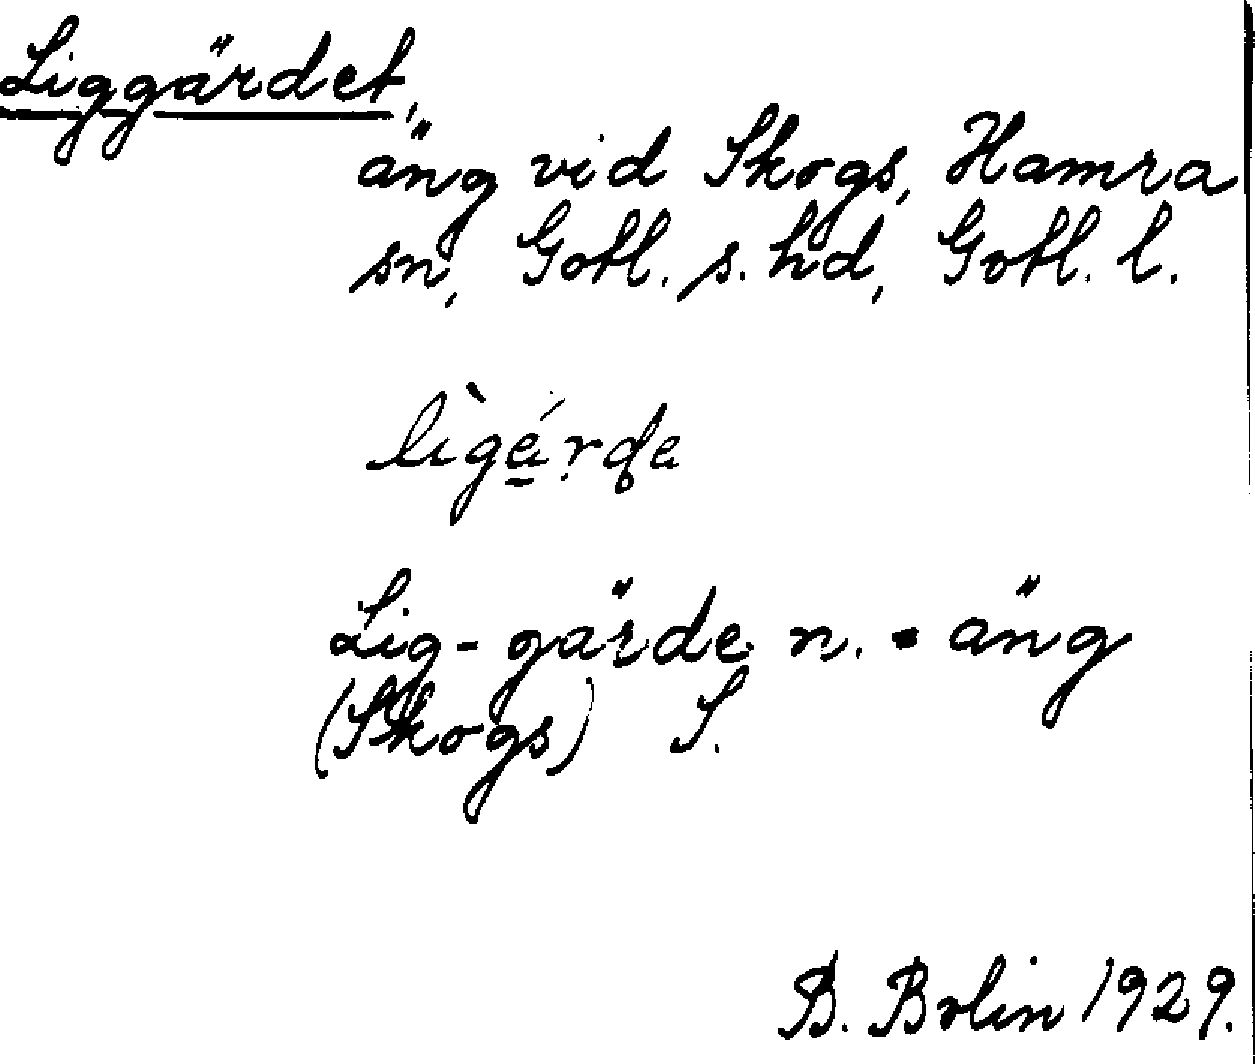 Liggärdet,
äng vid Skogs, Hamra
sn, Gotl. s. hd, Gotl. l.
lìgá̱rda
Lig-gärde n. • äng
(Skogs) S.
B. Bolin 1929.